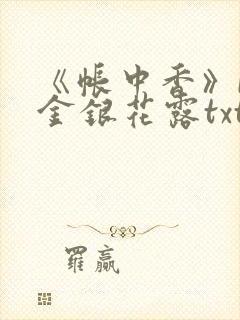 《帐中香》
金银花露txt
羅贏